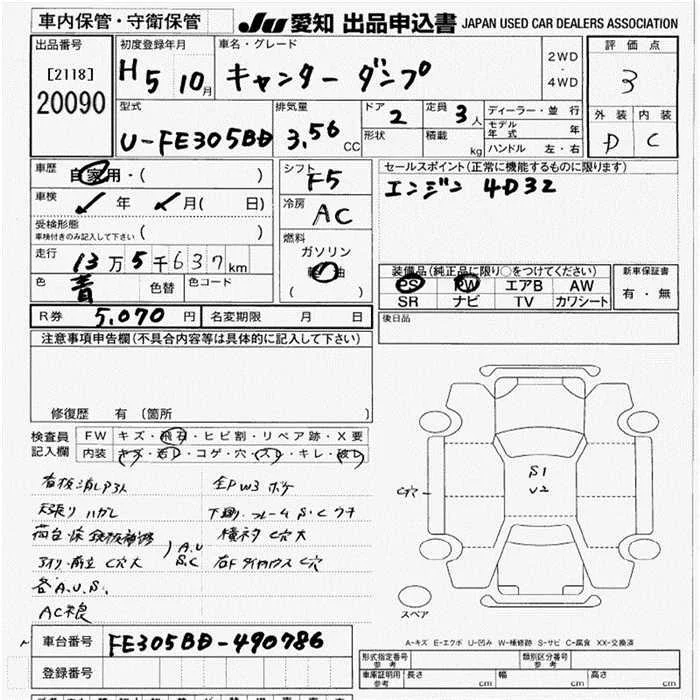 車内保管・守衛保管
JU 愛知 出品申込書 JAPAN USED CAR DEALERS ASSOCIATION
出品番号
[2118]
20090
初度登録年月
H5 10月
車名・グレード
キャンター ダンプ
2WD
・
4WD
評価点
3
外装 内装
D C
型式
U-FE305BD
排気量
3.56 CC
ドア
2
定員
3人
形状
積載
kg
ディーラー・並行
モデル年式 年
ハンドル 左・右
車歴
自家用・( )
車検
年 月( 日)
受検形態
車検付きのみ記入して下さい ( )
走行
13万5千637km
色
青
色替
色コード
シフト
F5
冷房
AC
燃料
ガソリン
軽油
( )
セールスポイント(正常に機能するものに限ります)
エンジン 4D32
装備品(純正品に限り○をつけてください)
PS PW エアB AW
SR ナビ TV カワシート
新車保証書
有・無
R券 5,070円
名変期限 月 日
後日品
注意事項申告欄(不具合内容等は具体的に記入して下さい)
修復歴 有(箇所 )
検査員
記入欄
FW キズ・飛石・ヒビ割・リペア跡・X要
内装 キズ・汚レ・コゲ・穴・スレ・キレ・破レ
看板消しP3人
全PW3 ボケ
天張り ハガレ
下廻り.フレームS.C ウチ
A.U
S.C
C穴大
C穴大
各A.U.S.
AC不良
C穴
S1
U2
スペア
A-キズ E-エクボ U-凹み W-補修跡 S-サビ C-腐食 XX-交換済
車台番号 FE305BD-490786
登録番号
形式指定番号
参考
類別区分番号
参考
車庫証明用
参考
長さ cm 幅 cm 高さ cm